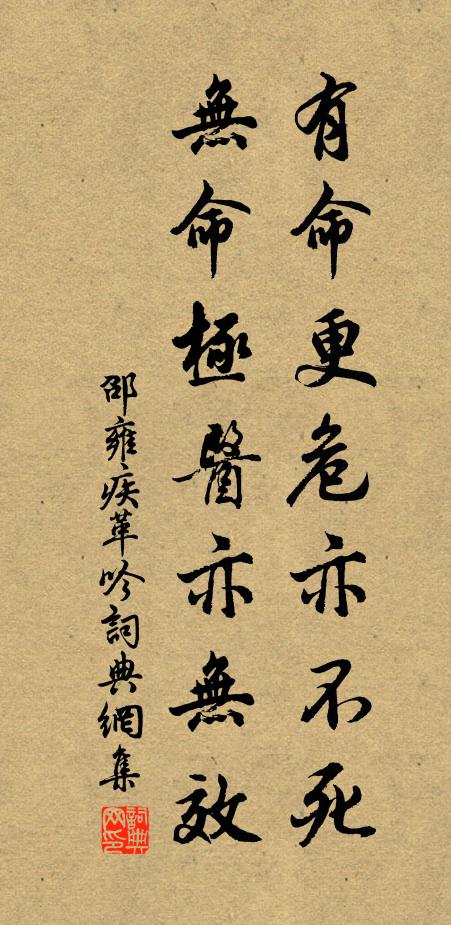 有命更危亦不死
無命極醫亦無效
邵雍疾革吟詞典網集
詞典網印